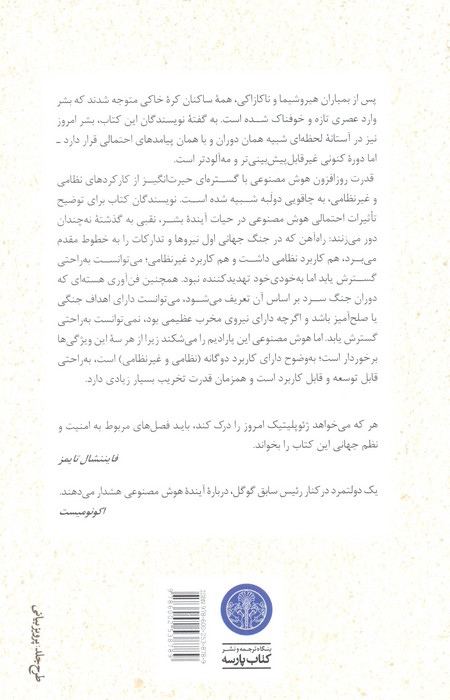 پس از بمباران هیروشیما و ناکازاکی، همهٔ ساکنان کرهٔ خاکی متوجه شدند که بشر
وارد عصری تازه و خوفناک شده است. به گفتهٔ نویسندگان این کتاب، بشر امروز
نیز در آستانهٔ لحظه‌ای شبیه همان دوران و با همان پیامدهای احتمالی قرار دارد ـ
اما دورهٔ کنونی غیرقابل‌پیش‌بینی‌تر و مه‌آلودتر است.
قدرت روزافزون هوش مصنوعی با گستره‌ای حیرت‌انگیز از کارکردهای نظامی
و غیرنظامی، به چاقویی دولَبه شبیه شده است. نویسندگان کتاب برای توضیح
تأثیرات احتمالی هوش مصنوعی در حیات آیندهٔ بشر، نقبی به گذشتهٔ نه‌چندان
دور می‌زنند: راه‌آهن که در جنگ جهانی اول نیروها و تدارکات را به خطوط مقدم
می‌برد، هم کاربرد نظامی داشت و هم کاربرد غیرنظامی؛ می‌توانست به‌راحتی
گسترش یابد اما به‌خودی‌خود تهدیدکننده نبود. همچنین فن‌آوری هسته‌ای که
دوران جنگ سرد بر اساس آن تعریف می‌شود، می‌توانست دارای اهداف جنگی
یا صلح‌آمیز باشد و اگرچه دارای نیروی مخرب عظیمی بود، نمی‌توانست به‌راحتی
گسترش یابد. اما هوش مصنوعی این پارادایم را می‌شکند زیرا از هر سهٔ این ویژگی‌ها
برخوردار است؛ به‌وضوح دارای کاربرد دوگانه (نظامی و غیرنظامی) است، به‌راحتی
قابل توسعه و قابل کاربرد است و همزمان قدرت تخریب بسیار زیادی دارد.
هر که می‌خواهد ژئوپلیتیک امروز را درک کند، باید فصل‌های مربوط به امنیت و
نظم جهانی این کتاب را بخواند.
فایننشال تایمز
یک دولتمرد در کنار رئیس سابق گوگل، دربارهٔ آیندهٔ هوش مصنوعی هشدار می‌دهند.
اکونومیست
بنگاه ترجمه و نشر
کتاب پارسه
طرح جلد: پرویز بیانی